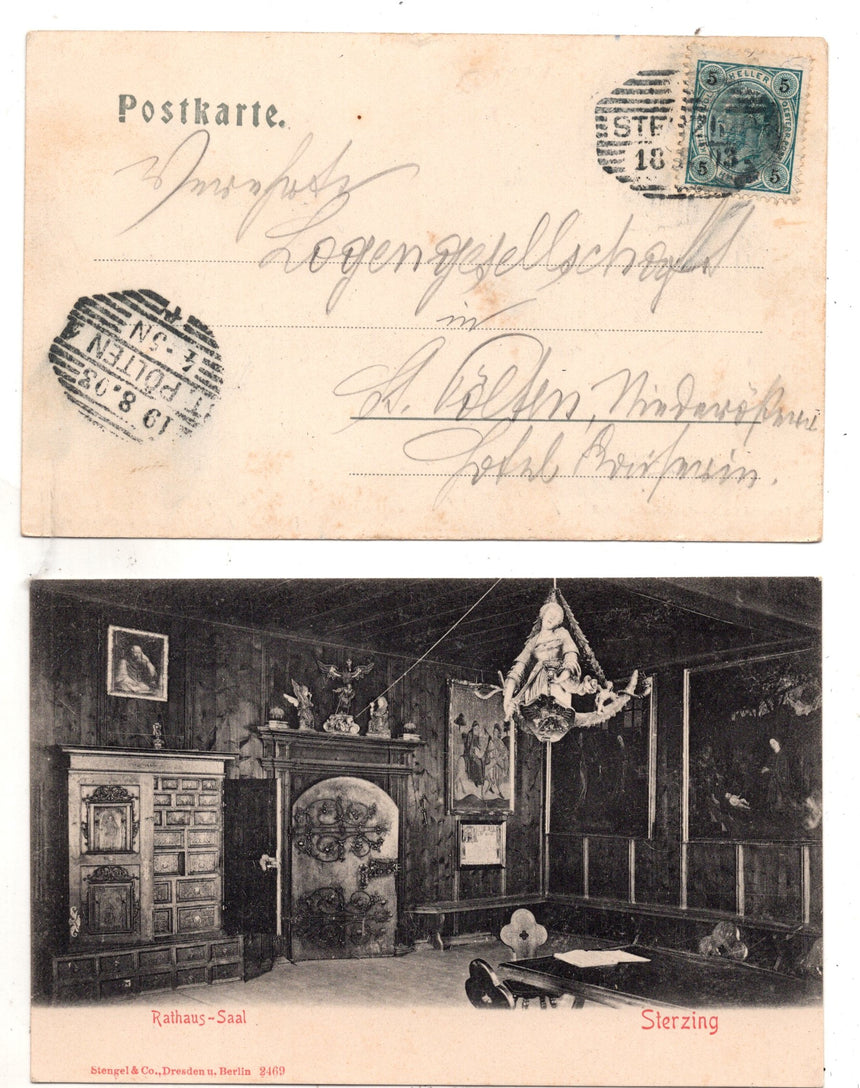 Postkarte.
5 HELLER 5
5 5
STE
18 03
Verehrte
Logengesellschaft
in
St. Pölten, Niederösterr
Hotel Kaiserin.
ST. PÖLTEN 1
19.8.03
4-5N
Rathaus-Saal
Sterzing
Stengel & Co., Dresden u. Berlin 2469